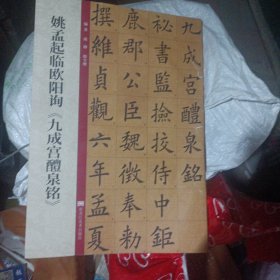 姚孟起临欧阳询《九成宫醴泉铭》
九成宫醴泉銘
秘書監撿挍侍中鉅
鹿郡公臣魏徵奉勑
撰維貞觀六年孟夏